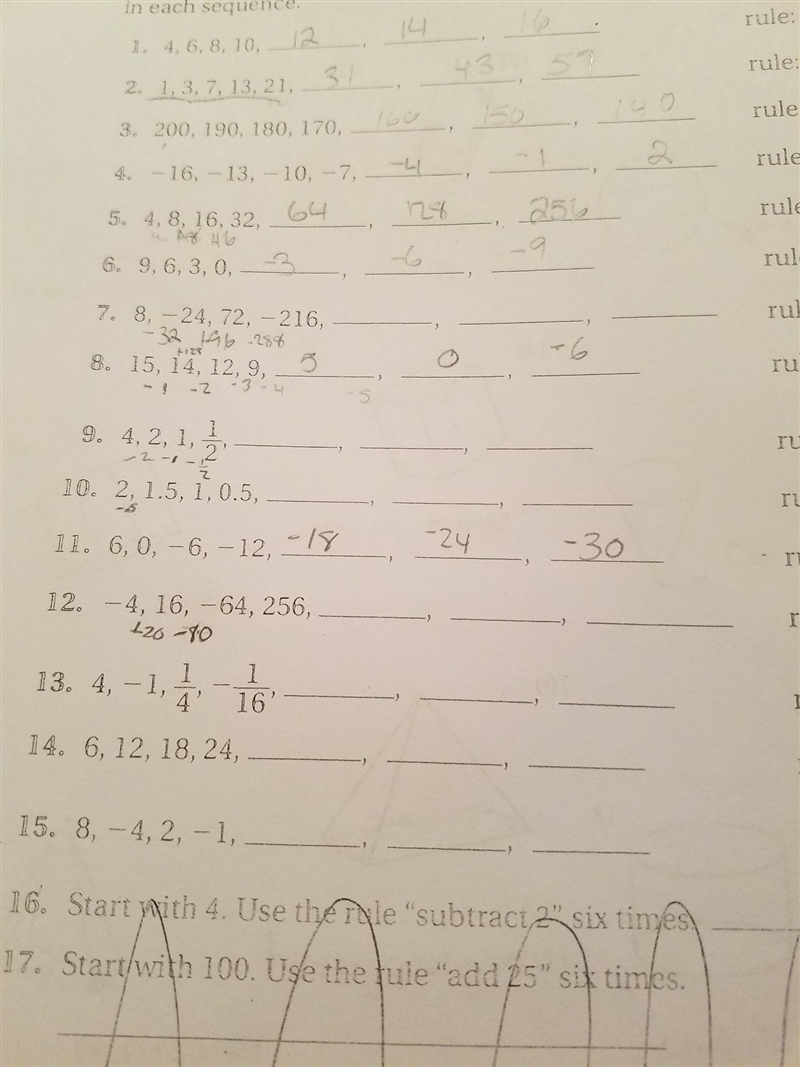 in each sequence.
rule:
1. 4, 6, 8, 10, 12, 14, 16
rule:
2. 1, 3, 7, 13, 21, 31, 43, 57
rule
3. 200, 190, 180, 170, 160, 150, 140
rule
4. −16, −13, −10, −7, -4, -1, 2
rul
5. 4, 8, 16, 32, 64, 128, 256
rul
6. 9, 6, 3, 0, -3, -6, -9
rul
7. 8, −24, 72, −216,
-32 +96 -288
ru
8. 15, 14, 12, 9, 5, 0, -6
-1 -2 -3 -4 -5
ru
9. 4, 2, 1, 1/2,
-2 -1 -1/2
ru
10. 2, 1.5, 1, 0.5,
-.5
r
11. 6, 0, −6, −12, -18, -24, -30
r
12. −4, 16, −64, 256,
+20 -80
13. 4, −1, 1/4, −1/16,
14. 6, 12, 18, 24,
15. 8, −4, 2, −1,
16. Start with 4. Use the rule “subtract 2” six times.
17. Start with 100. Use the rule “add 25” six times.